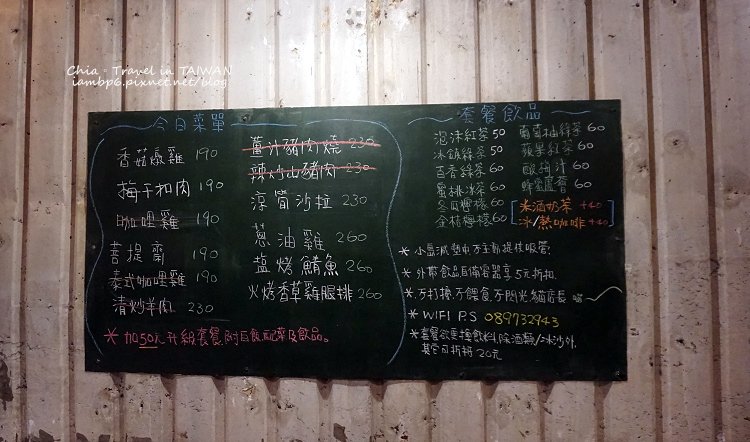 Chia ▫ Travel in TAIWAN
iambp6.pixnet.net/blog
今日菜單
香菇燉雞 190
梅干扣肉 190
咖哩雞 190
菩提齋 190
泰式咖哩雞 190
清炒羊肉 230
薑汁豬肉燒 230
辣炒山豬肉 230
涼筍沙拉 230
蔥油雞 260
鹽烤鯖魚 260
火烤香草雞腿排 260
*加50元升級套餐附白飯配菜及飲品。
套餐飲品
泡沫紅茶 50
冰釀綠茶 50
百香綠茶 60
蜜桃冰茶 60
冬瓜檸檬 60
金桔檸檬 60
葡萄柚綠茶 60
蘋果紅茶 60
酸梅汁 60
蜂蜜蘆薈 60
米酒奶茶 +40
冰/熱咖啡 +40
*小島減塑中不主動提供吸管.
*外帶飲品自備容器享5元折扣.
*不打擾.不餵食.不閃光貓店長
*WIFI P.S 089732943
*套餐欲更換飲料,除酒類/冰沙外,
其它可折抵20元